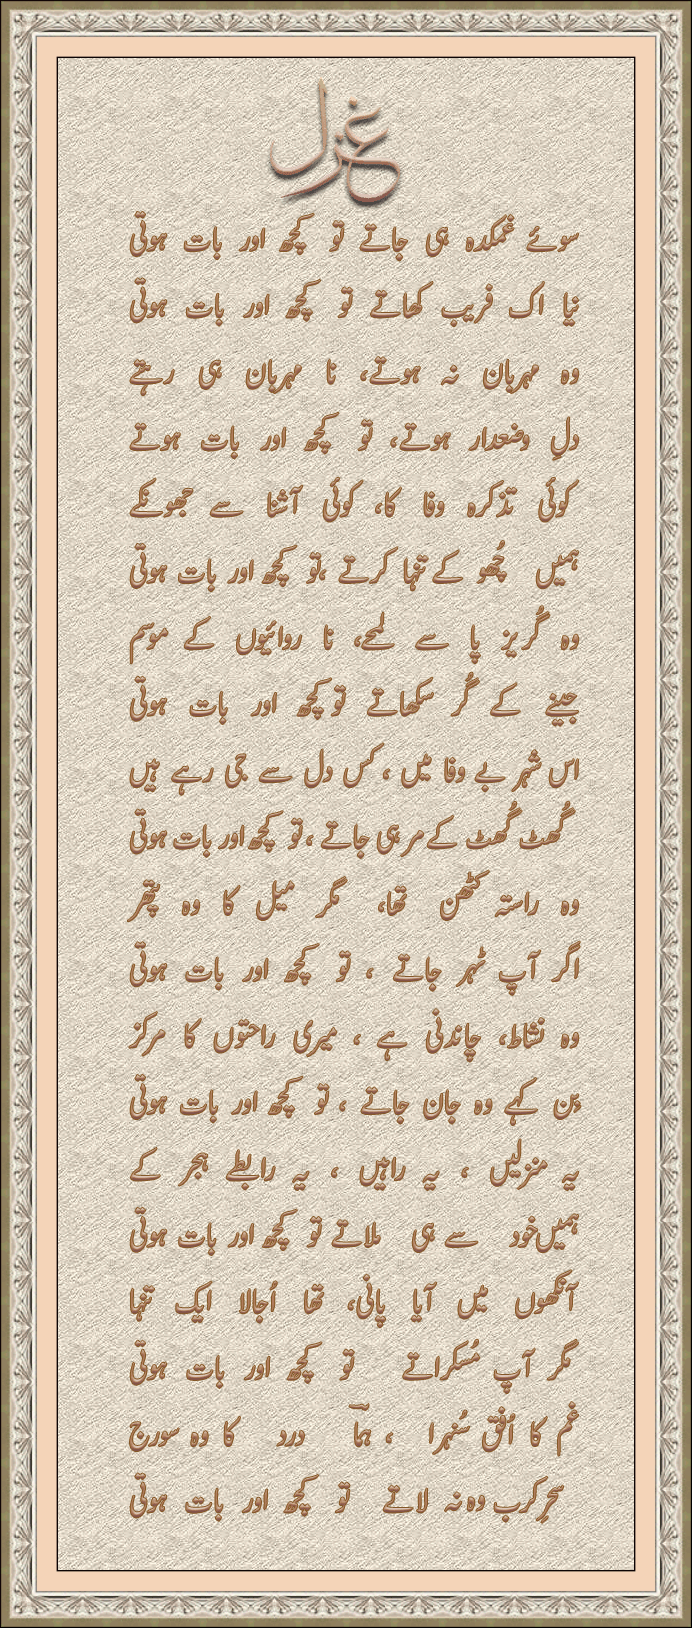 غزل
سوئے غمکدہ ہی جاتے تو کچھ اور بات ہوتی
نیا اک فریب کھاتے تو کچھ اور بات ہوتی
وہ مہربان نہ ہوتے، نا مہربان ہی رہتے
دلِ وضعدار ہوتے، تو کچھ اور بات ہوتے
کوئی تذکرہ وفا کا، کوئی آشنا سے جھونکے
ہمیں چُھو کے تنہا کرتے ،تو کچھ اور بات ہوتی
وہ گُریز پا سے لمحے، نا روائیوں کے موسم
جینے کے گُر سکھاتے تو کچھ اور بات ہوتی
اس شہر بے وفا میں ، کس دل سے جی رہے ہیں
گُھٹ گُھٹ کے مر ہی جاتے ،تو کچھ اور بات ہوتی
وہ راستہ کٹھن تھا، مگر میل کا وہ پتھر
اگر آپ ٹہر جاتے ، تو کچھ اور بات ہوتی
وہ نشاط، چاندنی ہے ، میری راحتوں کا مرکز
بِن کہے وہ جان جاتے ، تو کچھ اور بات ہوتی
یہ منزلیں ، یہ راہیں ، یہ رابطے ہجر کے
ہمیں خود سے ہی ملاتے تو کچھ اور بات ہوتی
آنکھوں میں آیا پانی، تھا اُجالا ایک تنہا
مگر آپ مُسکراتے تو کچھ اور بات ہوتی
غم کا اُفق سُنہرا ، ہما درد کا وہ سورج
سحرِ کرب وہ نہ لاتے تو کچھ اور بات ہوتی